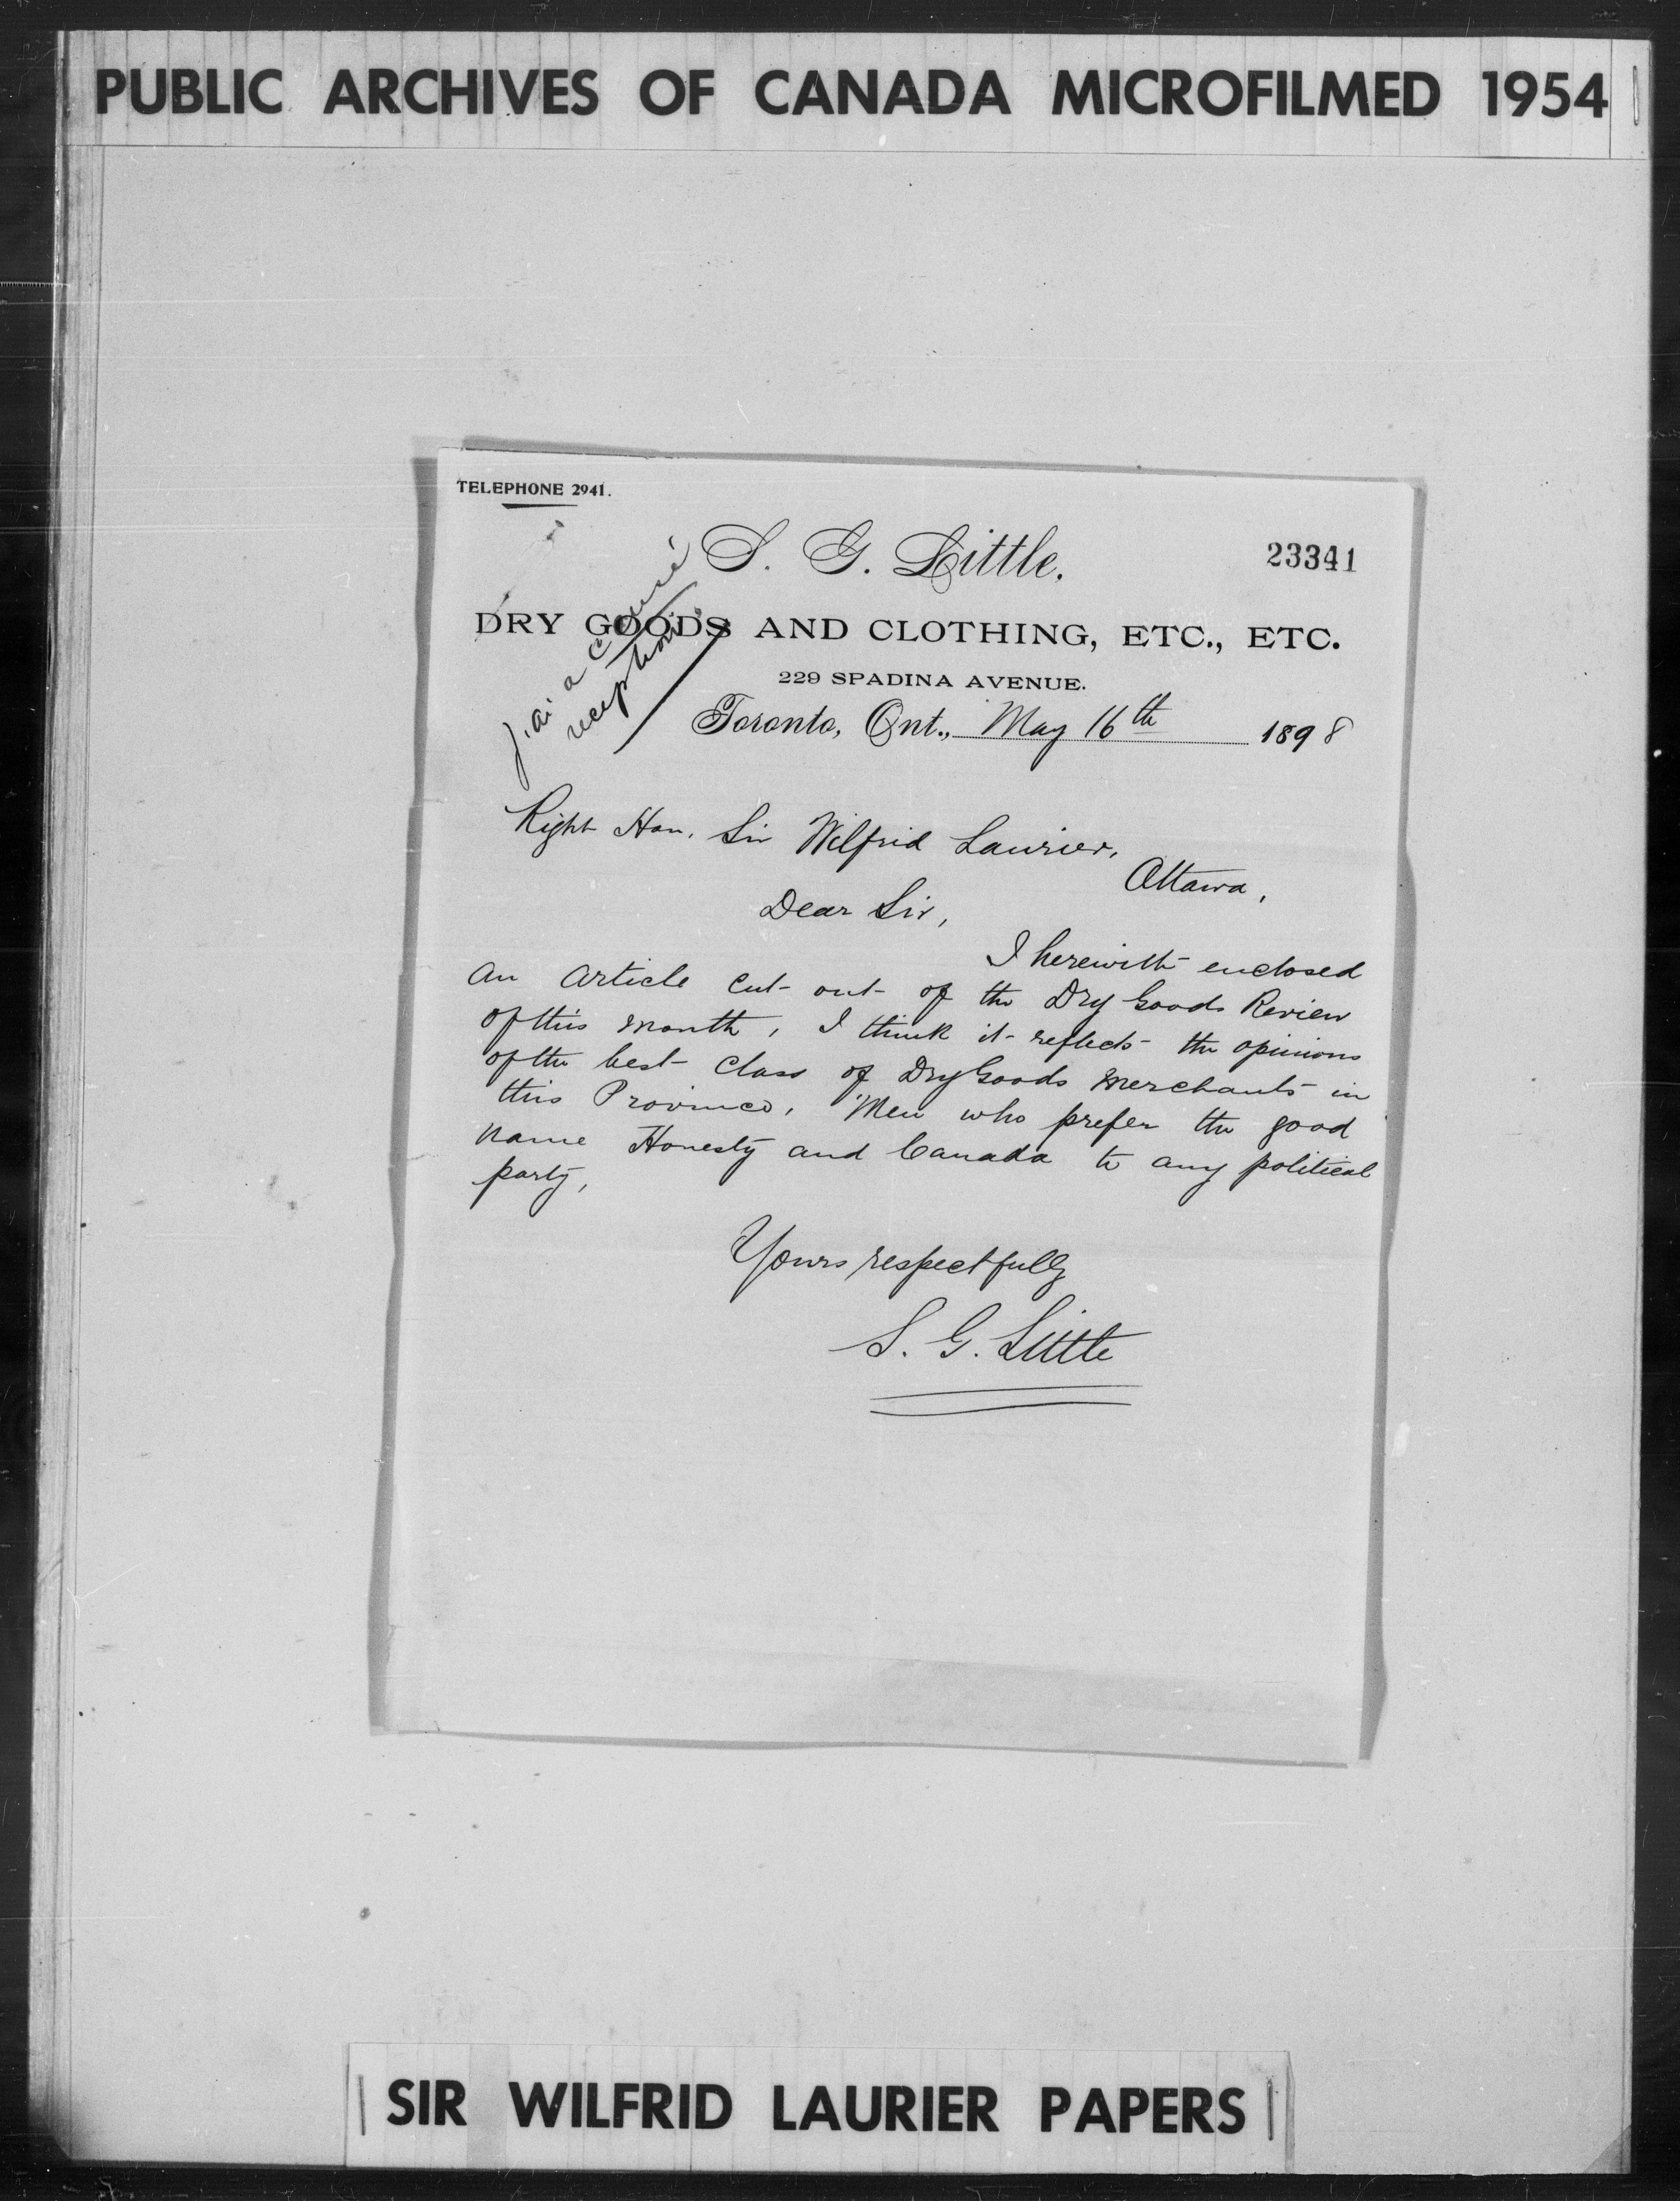 PUBLIC ARCHIVES OF CANADA MICROFILMED 1954
TELEPHONE 2941.
S. G. Little.
23341
DRY GOODS AND CLOTHING, ETC., ETC.
229 SPADINA AVENUE.
J'ai accusé
réception
Toronto, Ont., May 16th 1898
Right Hon. Sir Wilfrid Laurier,
Ottawa,
Dear Sir,
I herewith enclosed
an article cut out of the Dry Goods Review
of this month, I think it reflects the opinions
of the best class of Dry Goods merchants in
this Province, Men who prefer the good
name Honesty and Canada to any political
party,
Yours respectfully
S. G. Little
SIR WILFRID LAURIER PAPERS